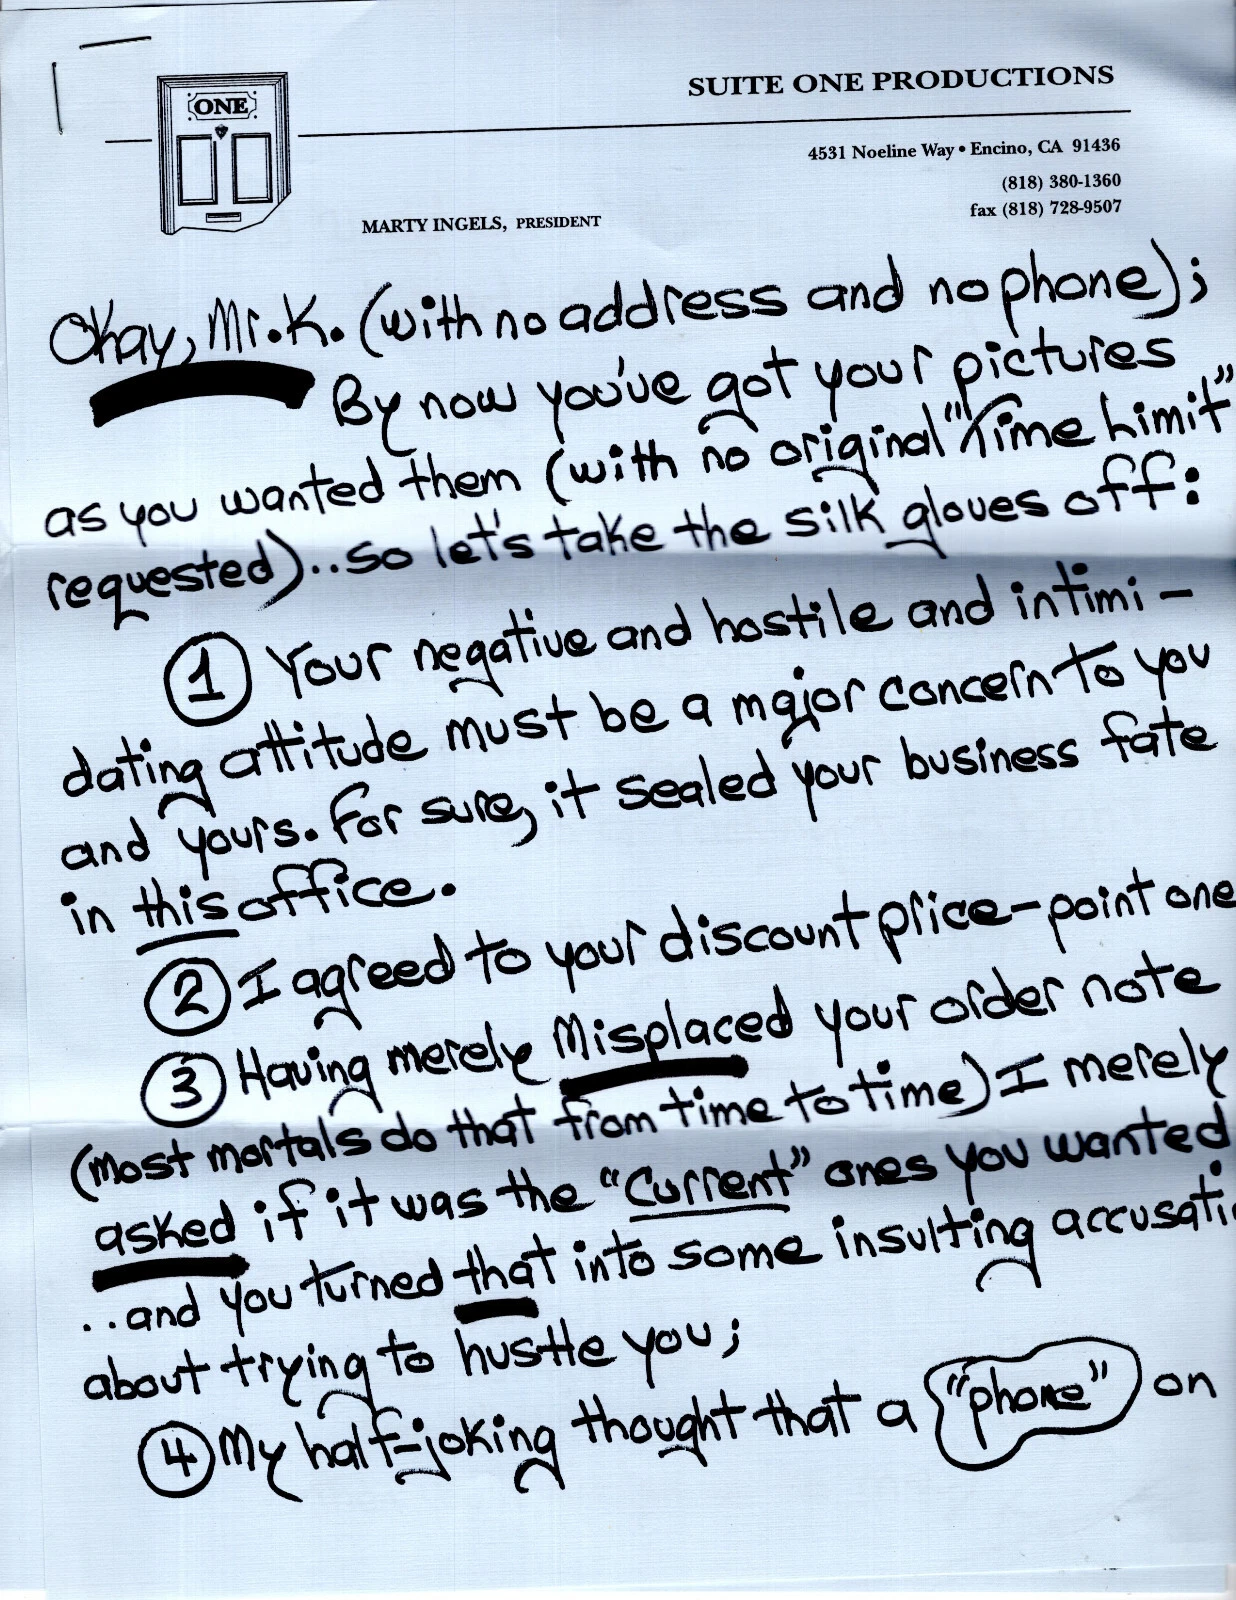 ONE
SUITE ONE PRODUCTIONS
4531 Noeline Way • Encino, CA 91436
(818) 380-1360
fax (818) 728-9507
MARTY INGELS, PRESIDENT
Okay, Mr. K. (with no address and no phone);
By now you've got your pictures
as you wanted them (with no original "Time Limit"
requested)..so let's take the silk gloves off:
1 Your negative and hostile and intimi-
dating attitude must be a major concern to you
and yours. For sure, it sealed your business fate
in this office.
2 I agreed to your discount price-point one
3 Having merely Misplaced your order note
(most mortals do that from time to time) I merely
asked if it was the "Current" ones you wanted
..and you turned that into some insulting accusati
about trying to hustle you;
4 My half-joking thought that a "phone" on